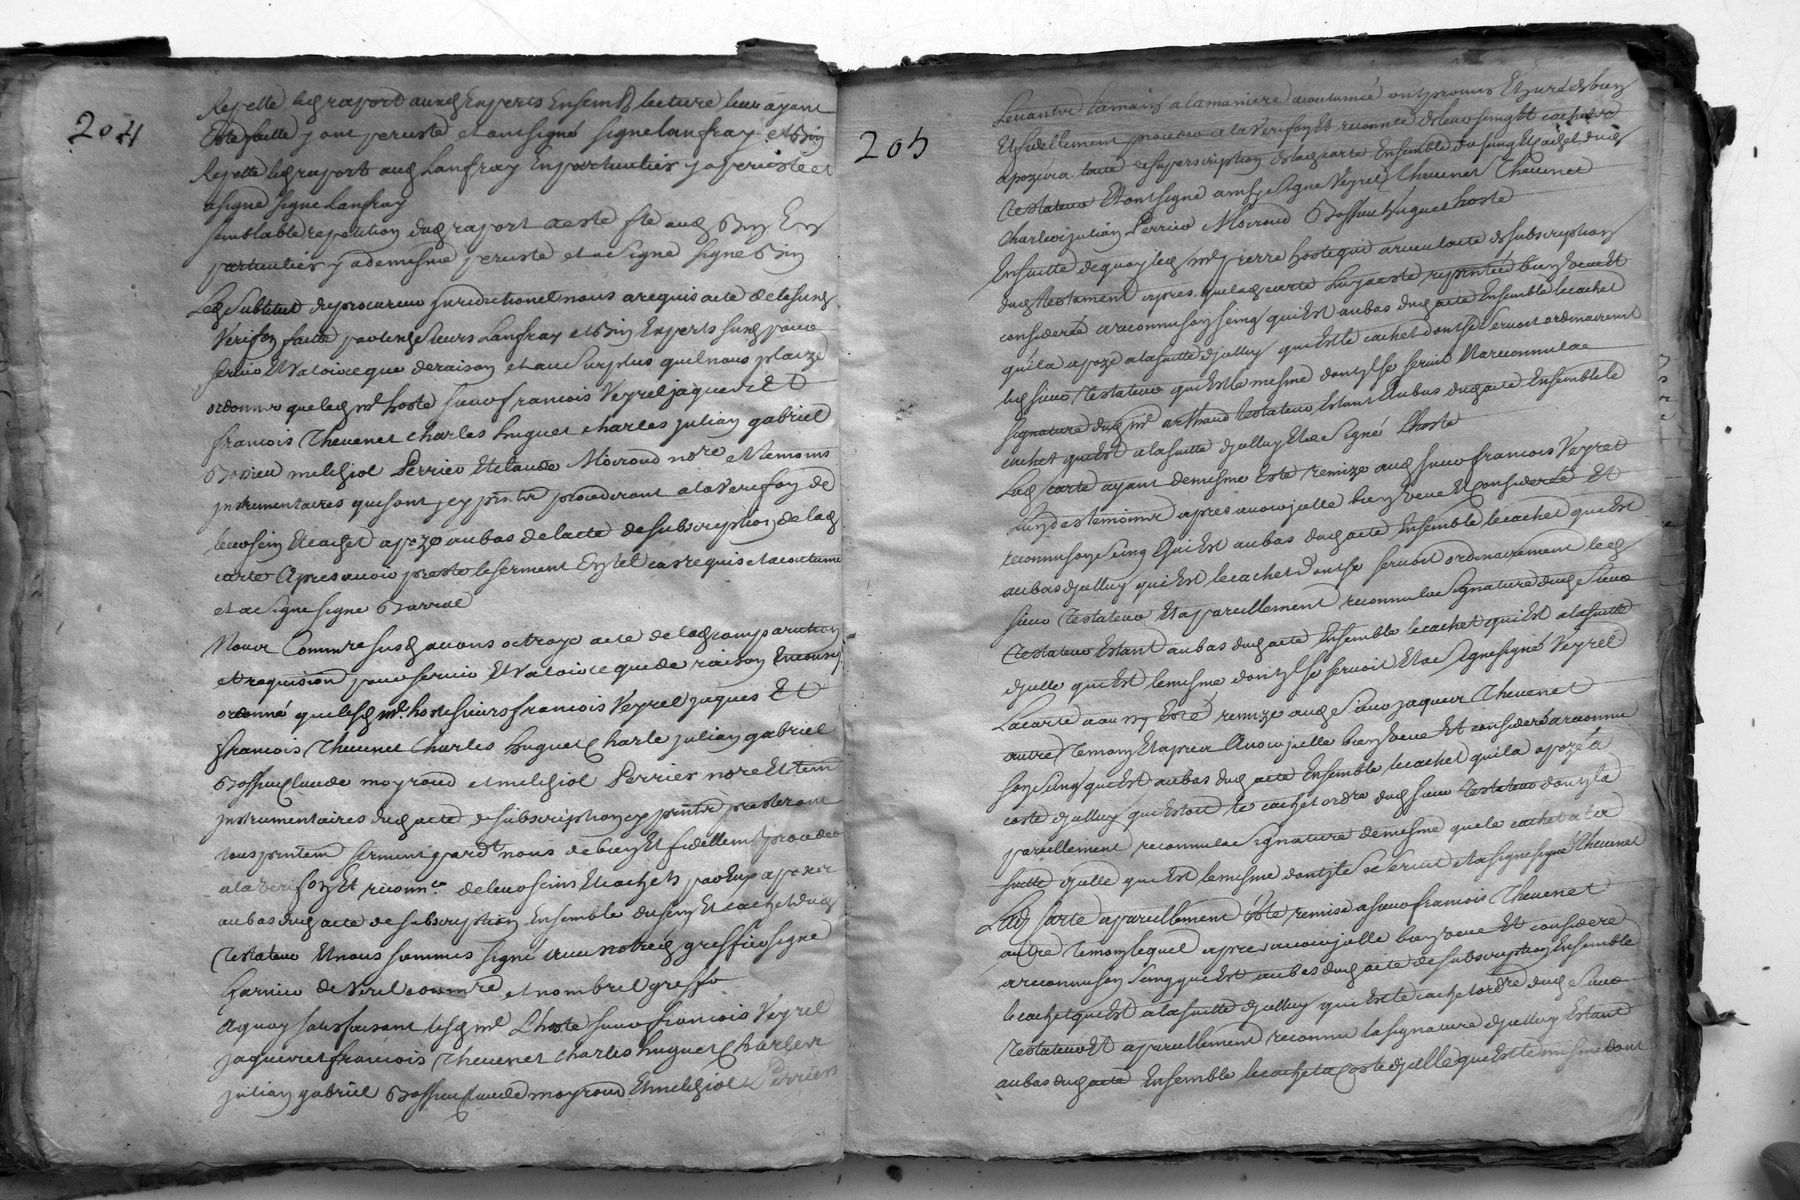 204
Repetté led raport auxd Experts Ensemble lecture leur ayant
Esté faitte y ont percisté et ont signé signe Lanfray et Bin
Repetté led raport aud Lanfray En particulier y a percisté et
a signé signe Lanfray
semblable repetition dud raport a esté fte aud Bin En
particulier y a de mesme percisté et a signé signe Bin
Led Substitut du procureur jurisdictionel nous a requis acte de la susd
Veriffon faitte par lesd sieurs Lanfray et Bin Experts susd pour
servir Et valoir ce que de raison et au surplus quil nous plaize
ordonner que led me hoste sieur francois Veyret jaques Et
francois Thevenet Charles huguet charles julian gabriel
melchiol Perrier Et claude Moiroud nore et temoins
instrumentaires qui sont icy pntz procederont a la veriffon de
leur sein Et cachet apozé au bas de lacte de subscription de lad
carte Apres avoir presté le serment En tel cas requis et acoutumé
et a signe signe Barral
Nous Commre susd avons octroyé acte de lad comparution
et requision pour servir Et valoir ce que de raison Encons
ordonné que lesd me. hoste sieurs francois Veyret jaques Et
francois Thevenet Charles huguet Charle julian gabriel
Bossu Claude moyroud et melchiol Perrier nore Et tem
instrumentaires dud acte de subscription cy pntz presteront
tous pntem serment pardt nous de bien Et fidellemt proceder
a la veriffon Et reconnce de leur seins Et cachets par Eux apozer
au bas dud acte de subscription Ensemble du sein Et cachet dud
Testateur Et nous sommes signé avec notred greffier signe
Garnier de Viril commre et nombret greffr
A quoy satisfaisant lesd me Lhoste sieur francois Veyret
jaques et francois Thevenet Charles huguet Charles
julian gabriel Bossu Claude moyroud Et melchiol Perrier
205
Levant la main a la maniere acoutumée ont promis Et juré de bien
Et fidellement proceder a la veriffon Et reconnce de leur seing Et cachet
apozéz a lacte de superscription de lad carte Ensemble du seing Et cachet dud
Testateur Et ont signé ainsy signe Veyret Thevenet Thevenet
Charles julian Perrier Moiroud Bossu huguet hoste
En suitte de quoy led me pierre hoste qui a receu lacte de subscription
dud testament apres que lad carte luy a esté represntée bien veue Et
considerée a reconnu son seing qui Est au bas dud acte Ensemble le cachet
quil a apozé a la suitte dicelluy qui Est le cachet dont se servoit ordinairement
led sieur Testateur qui Est le mesme dont il se servit Et a reconnu la
signature dud me arthaud testateur Estant Au bas dud acte Ensemble le
cachet qui Est a la suitte dicelluy Et a signé Lhoste
Lad carte ayant de mesme Esté remize aud sieur francois Veyret
Lun des temoins apres avoir icelle bien veue Et considerée Et
reconnu son seing Qui Est au bas dud acte Ensemble le cachet qui Est
au bas dicelluy qui Est le cachet dont se servoit ordinairement led
sieur Testateur Et a pareillement reconnu la signature dud sieur
Testateur Estant au bas dud acte Ensemble le cachet qui Est a la suitte
dicelle qui Est le mesme dont il se servoit Et a signe signé Veyret
La carte a aussy Esté remize aud sieur jaques Thevenet
autre Temoin Et apres Avoir icelle bien veue Et considerée a reconnu
son seing qui Est au bas dud acte Ensemble le cachet quil a apozé a
coste dicelluy qui Estoit le cachet ordre dud sieur Testateur dont il a
pareillement reconnu la signature de mesme que le cachet a la
suitte dicelle qui Est le mesme dont il se servit et a signe signe Thevenet
Lad Carte a pareillement Esté remise a sieur francois Thevenet
autre Temoin lequel apres avoir icelle bien veue Et considere
a reconnu son seing qui Est au bas dud acte de subscription Ensemble
le cachet qui Est a la suitte dicelluy qui Est le cachet ordre dud sieur
Testateur Et a pareillement reconnu la signature dicelluy Estant
au bas dud acte Ensemble le cachet a coste dicelle qui Est le mesme dont